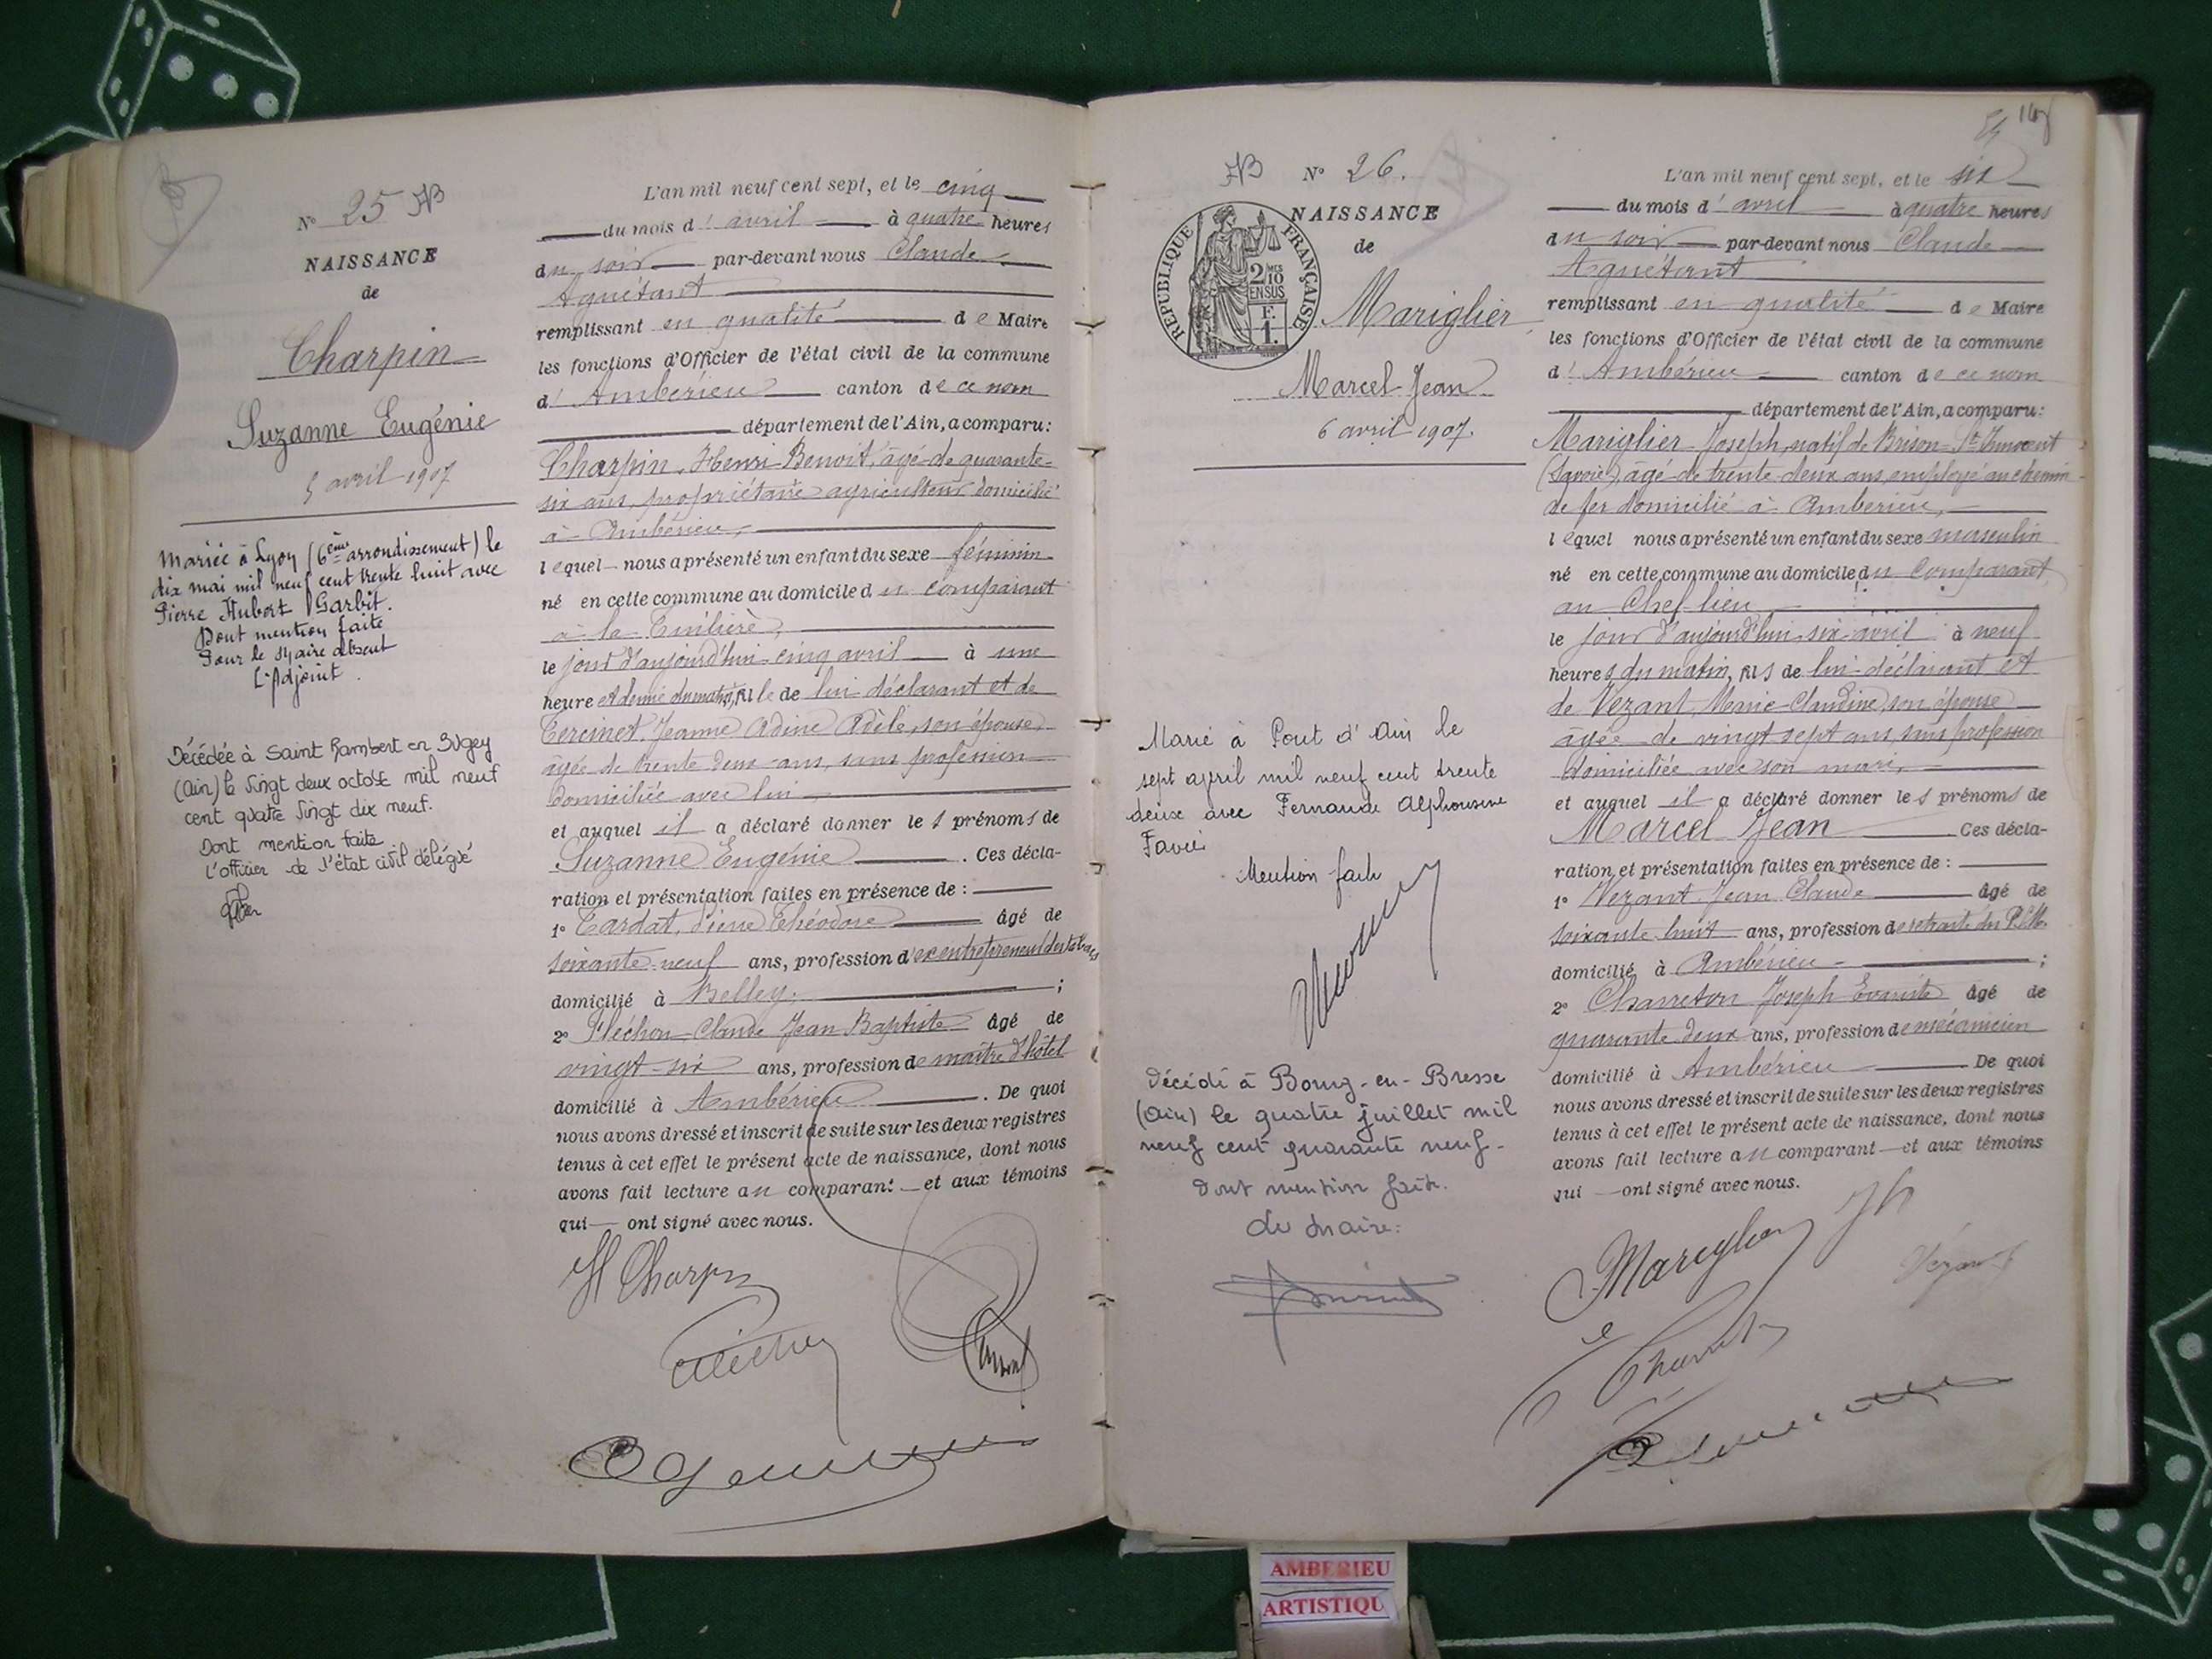 N° 25 AB
NAISSANCE
de
Charpin
Suzanne Eugénie
5 avril 1907
Mariée à Lyon (6ème arrondissement) le
dix mai mil neuf cent trente huit avec
Pierre Hubert Garbit.
Dont mention faite
Pour le Maire absent
L'Adjoint.
Décédée à Saint Rambert en Bugey
(Ain) le vingt deux octobre mil neuf
cent quatre vingt dix neuf.
Dont mention faite
L'officier de l'état civil délégué
L'an mil neuf cent sept, et le cinq
du mois d'avril à quatre heures
du soir par-devant nous Claude
Aguétant
remplissant en qualité de Maire
les fonctions d'Officier de l'état civil de la commune
d'Ambérieu canton de ce nom
département de l'Ain, a comparu:
Charpin, Henri Benoit, âgé de quarante-
six ans, propriétaire agriculteur domicilié
à Ambérieu,
lequel nous a présenté un enfant du sexe féminin
né en cette commune au domicile du comparant
à la
le jour d'aujourd'hui cinq avril à une
heure et demie du matin, fille de lui déclarant et de
Tercinet Jeanne Adine Adèle, son épouse,
âgée de trente deux ans, sans profession
domiciliée avec lui
et auquel il a déclaré donner les prénoms de
Suzanne Eugénie. Ces décla-
ration et présentation faites en présence de :
1° Tardat, Pierre Théodore âgé de
soixante-neuf ans, profession d'ex entrepreneur des tabacs
domicilié à Belley ;
2° Pléchon Claude Jean Baptiste âgé de
vingt-six ans, profession de maître d'hôtel
domicilié à Ambérieu. De quoi
nous avons dressé et inscrit de suite sur les deux registres
tenus à cet effet le présent acte de naissance, dont nous
avons fait lecture au comparant et aux témoins
qui ont signé avec nous.
H Charpin
AB N° 26.
NAISSANCE
de
RÉPUBLIQUE FRANÇAISE
2 MES
10
EN SUS
F.
1.
Mariglier
Marcel Jean
6 avril 1907.
Marié à Pont d'Ain le
sept april mil neuf cent trente
deux avec Fernande Alphonsine
Favier
Mention faite
Décédé à Bourg-en-Bresse
(Ain) le quatre juillet mil
neuf cent quarante neuf.
Dont mention faite.
Le Maire:
167
L'an mil neuf cent sept, et le six
du mois d'avril à quatre heures
du soir par-devant nous Claude
Aguétant
remplissant en qualité de Maire
les fonctions d'Officier de l'état civil de la commune
d'Ambérieu canton de ce nom
département de l'Ain, a comparu:
Mariglier Joseph, natif de Brison-St Innocent
(Savoie), âgé de trente deux ans, employé au chemin
de fer domicilié à Ambérieu,
lequel nous a présenté un enfant du sexe masculin
né en cette commune au domicile du comparant
au Chef-lieu,
le jour d'aujourd'hui six avril à neuf
heures du matin, fils de lui déclarant et
de Vezant, Marie Claudine, son épouse
âgée de vingt sept ans, sans profession
domiciliée avec son mari,
et auquel il a déclaré donner les prénoms de
Marcel Jean Ces décla-
ration et présentation faites en présence de :
1° Vezant Jean Claude âgé de
soixante huit ans, profession de retraité du P.L.M.
domicilié à Ambérieu ;
2° Charreton Joseph Evariste âgé de
quarante deux ans, profession de mécanicien
domicilié à Ambérieu De quoi
nous avons dressé et inscrit de suite sur les deux registres
tenus à cet effet le présent acte de naissance, dont nous
avons fait lecture au comparant et aux témoins
qui ont signé avec nous.
Mariglier Jh
Vézant
AMBERIEU
ARTISTIQU